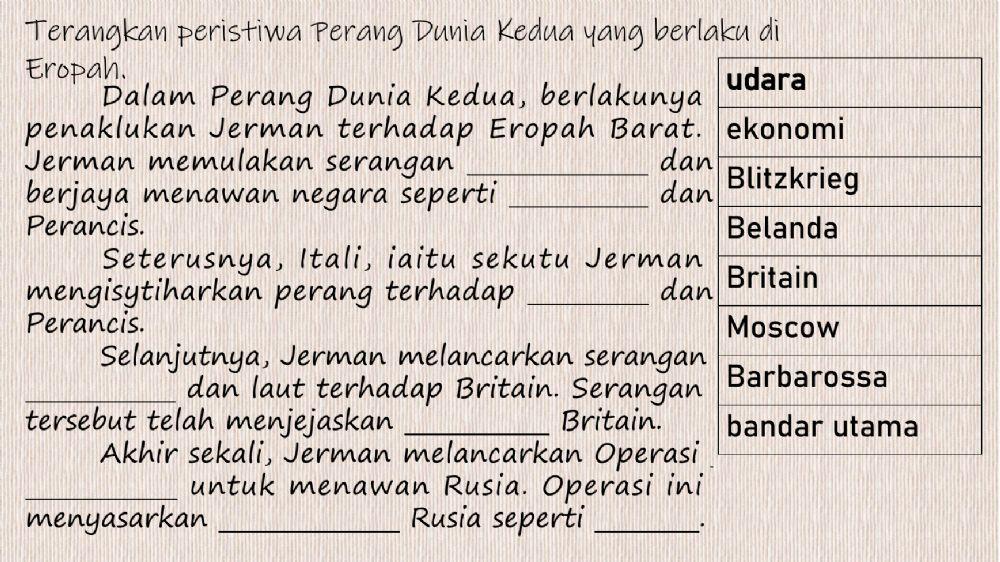 Terangkan peristiwa Perang Dunia Kedua yang berlaku di
Eropah.
Dalam Perang Dunia Kedua, berlakunya
penaklukan Jerman terhadap Eropah Barat.
Jerman memulakan serangan ____________ dan
berjaya menawan negara seperti __________ dan
Perancis.
Seterusnya, Itali, iaitu sekutu Jerman
mengisytiharkan perang terhadap _________ dan
Perancis.
Selanjutnya, Jerman melancarkan serangan
___________ dan laut terhadap Britain. Serangan
tersebut telah menjejaskan __________ Britain.
Akhir sekali, Jerman melancarkan Operasi
___________ untuk menawan Rusia. Operasi ini
menyasarkan ____________ Rusia seperti ________.
udara
ekonomi
Blitzkrieg
Belanda
Britain
Moscow
Barbarossa
bandar utama